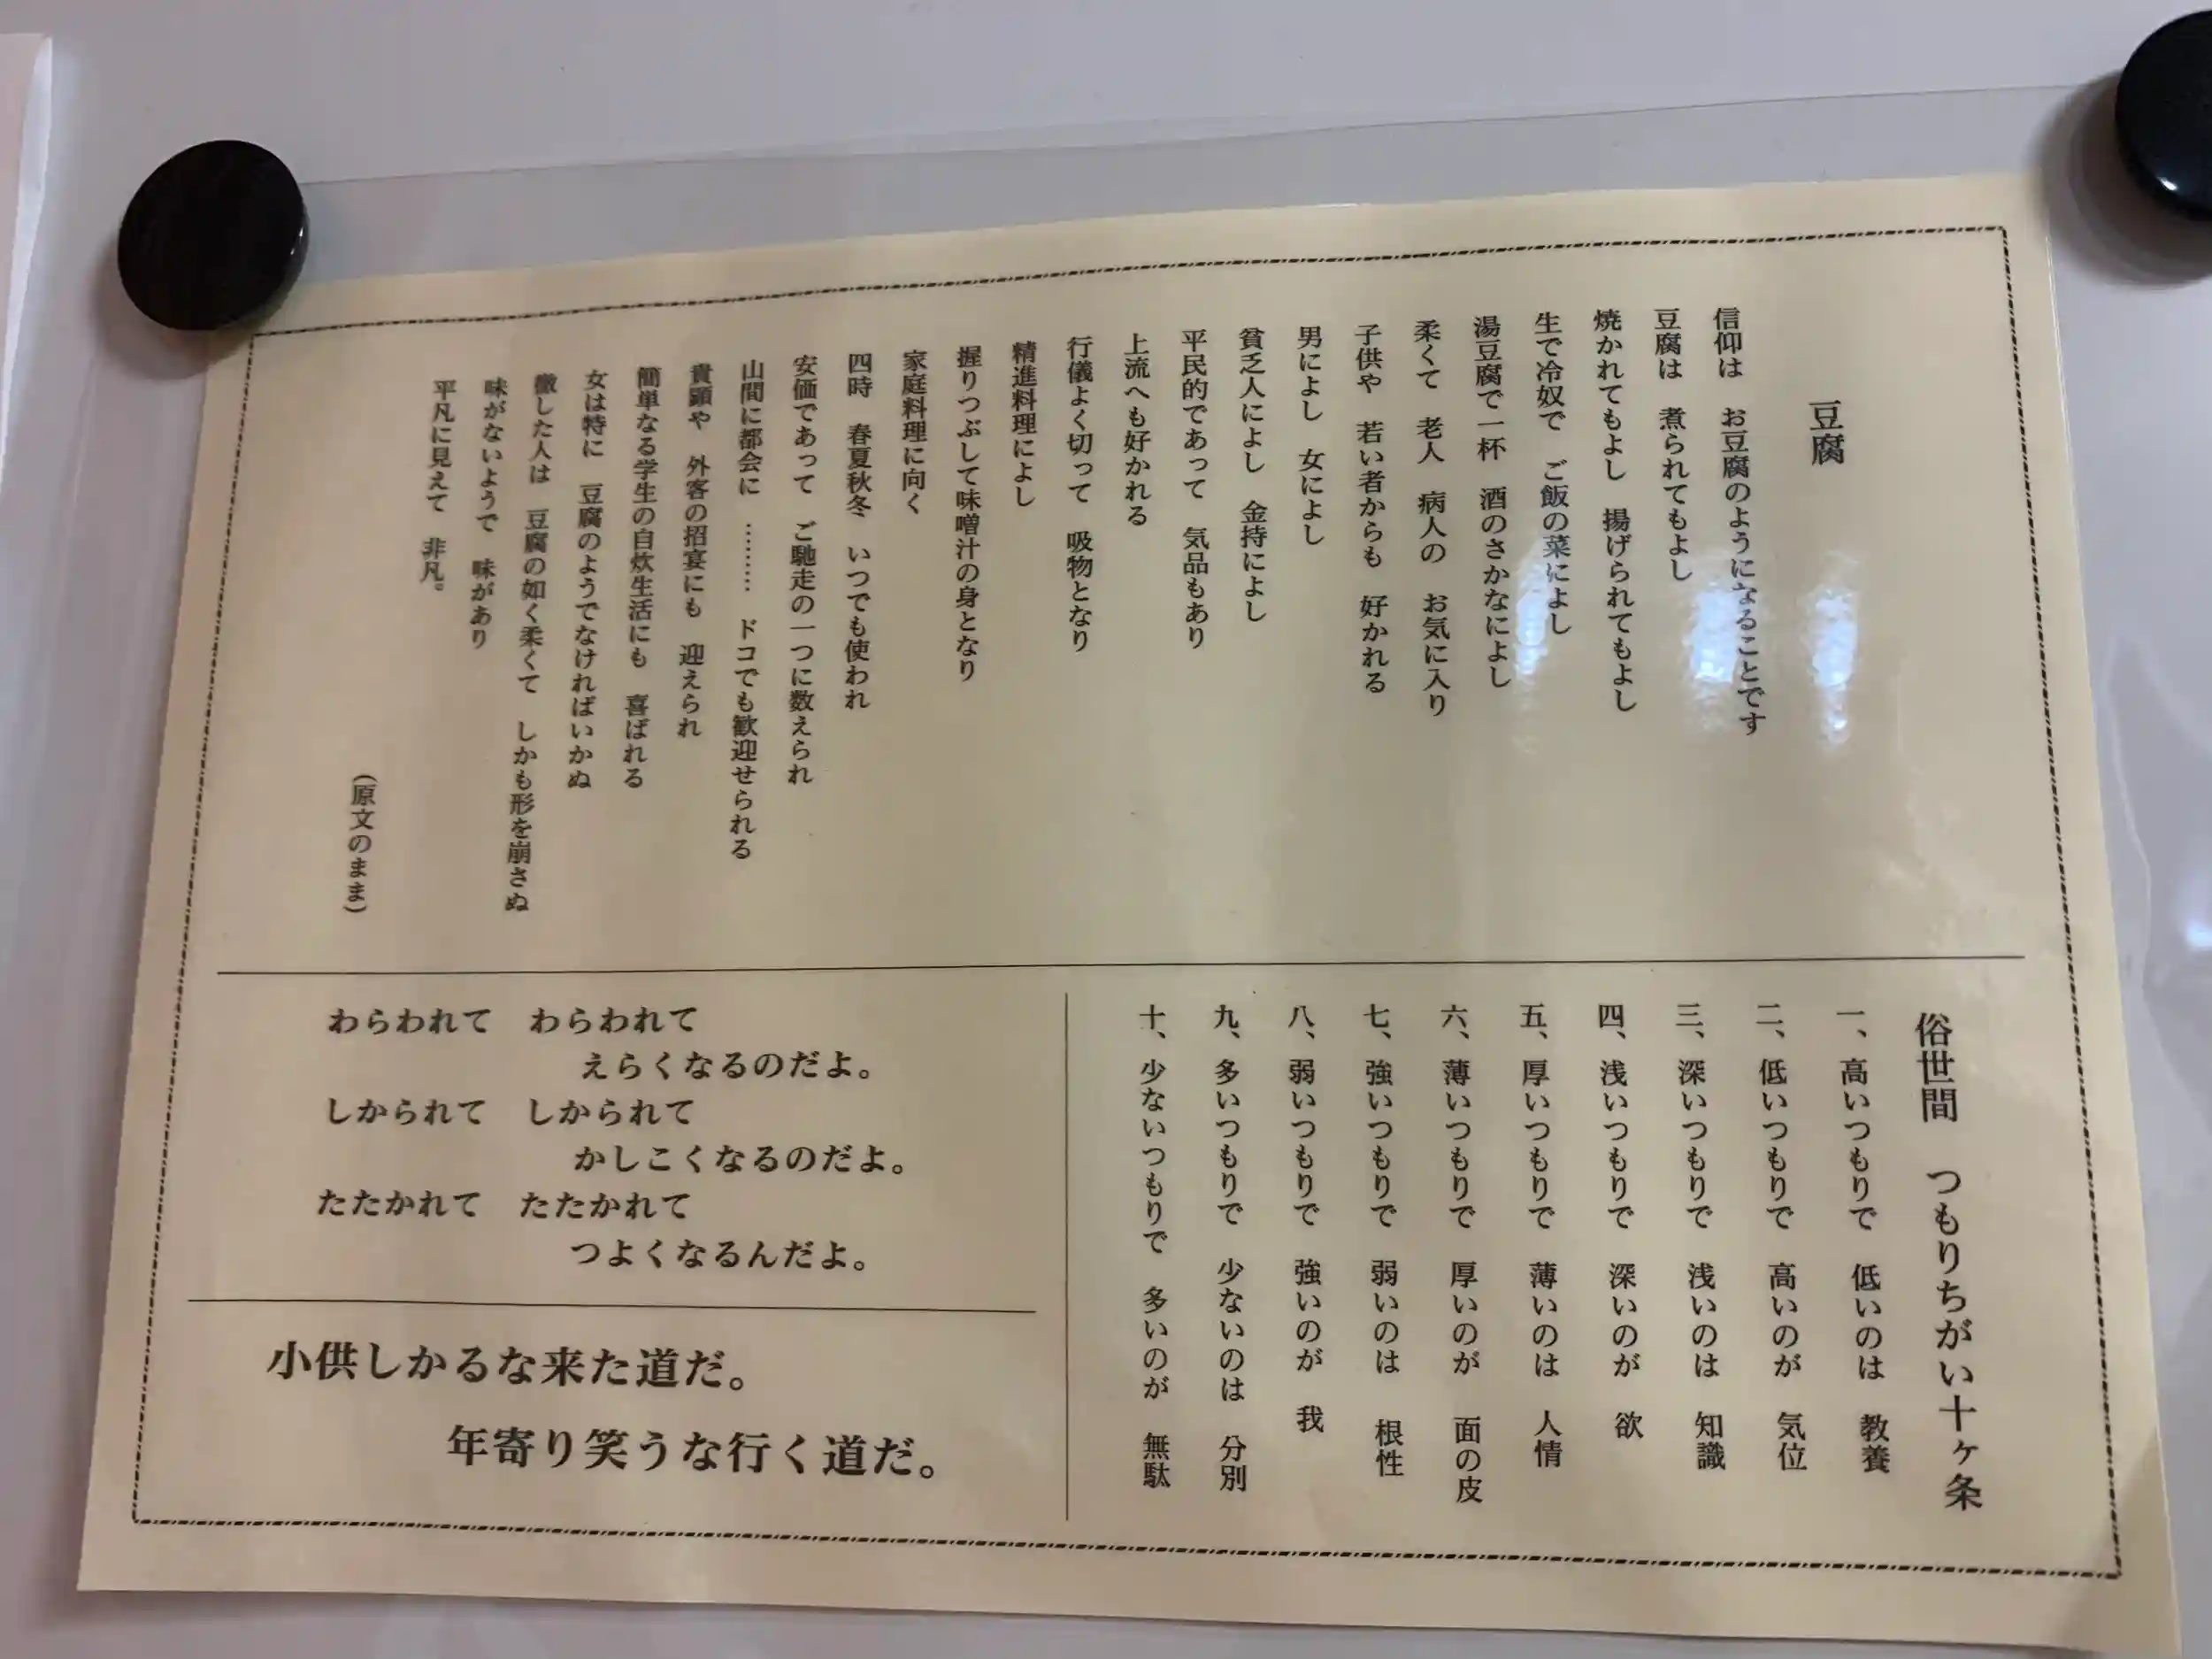 豆腐
信仰は　お豆腐のようになることです
豆腐は　煮られてもよし
焼かれてもよし　揚げられてもよし
生で冷奴で　ご飯の菜によし
湯豆腐で一杯　酒のさかなによし
柔くて　老人　病人の　お気に入り
子供や　若い者からも　好かれる
男によし　女によし
貧乏人によし　金持によし
平民的であって　気品もあり
上流へも好かれる
行儀よく切って　吸物となり
精進料理によし
握りつぶして味噌汁の身となり
家庭料理に向く
四時　春夏秋冬　いつでも使われ
安価であって　ご馳走の一つに数えられ
山間に都会に　………　ドコでも歓迎せられる
貴顕や　外客の招宴にも　迎えられ
簡単なる学生の自炊生活にも　喜ばれる
女は特に　豆腐のようでなければいかぬ
徹した人は　豆腐の如く柔くて　しかも形を崩さぬ
味がないようで　味があり
平凡に見えて　非凡。
（原文のまま）
俗世間　つもりちがい十ヶ条
一、高いつもりで　低いのは　教養
二、低いつもりで　高いのが　気位
三、深いつもりで　浅いのは　知識
四、浅いつもりで　深いのが　欲
五、厚いつもりで　薄いのは　人情
六、薄いつもりで　厚いのが　面の皮
七、強いつもりで　弱いのは　根性
八、弱いつもりで　強いのが　我
九、多いつもりで　少ないのは　分別
十、少ないつもりで　多いのが　無駄
わらわれて　わらわれて
えらくなるのだよ。
しかられて　しかられて
かしこくなるのだよ。
たたかれて　たたかれて
つよくなるんだよ。
小供しかるな来た道だ。
年寄り笑うな行く道だ。